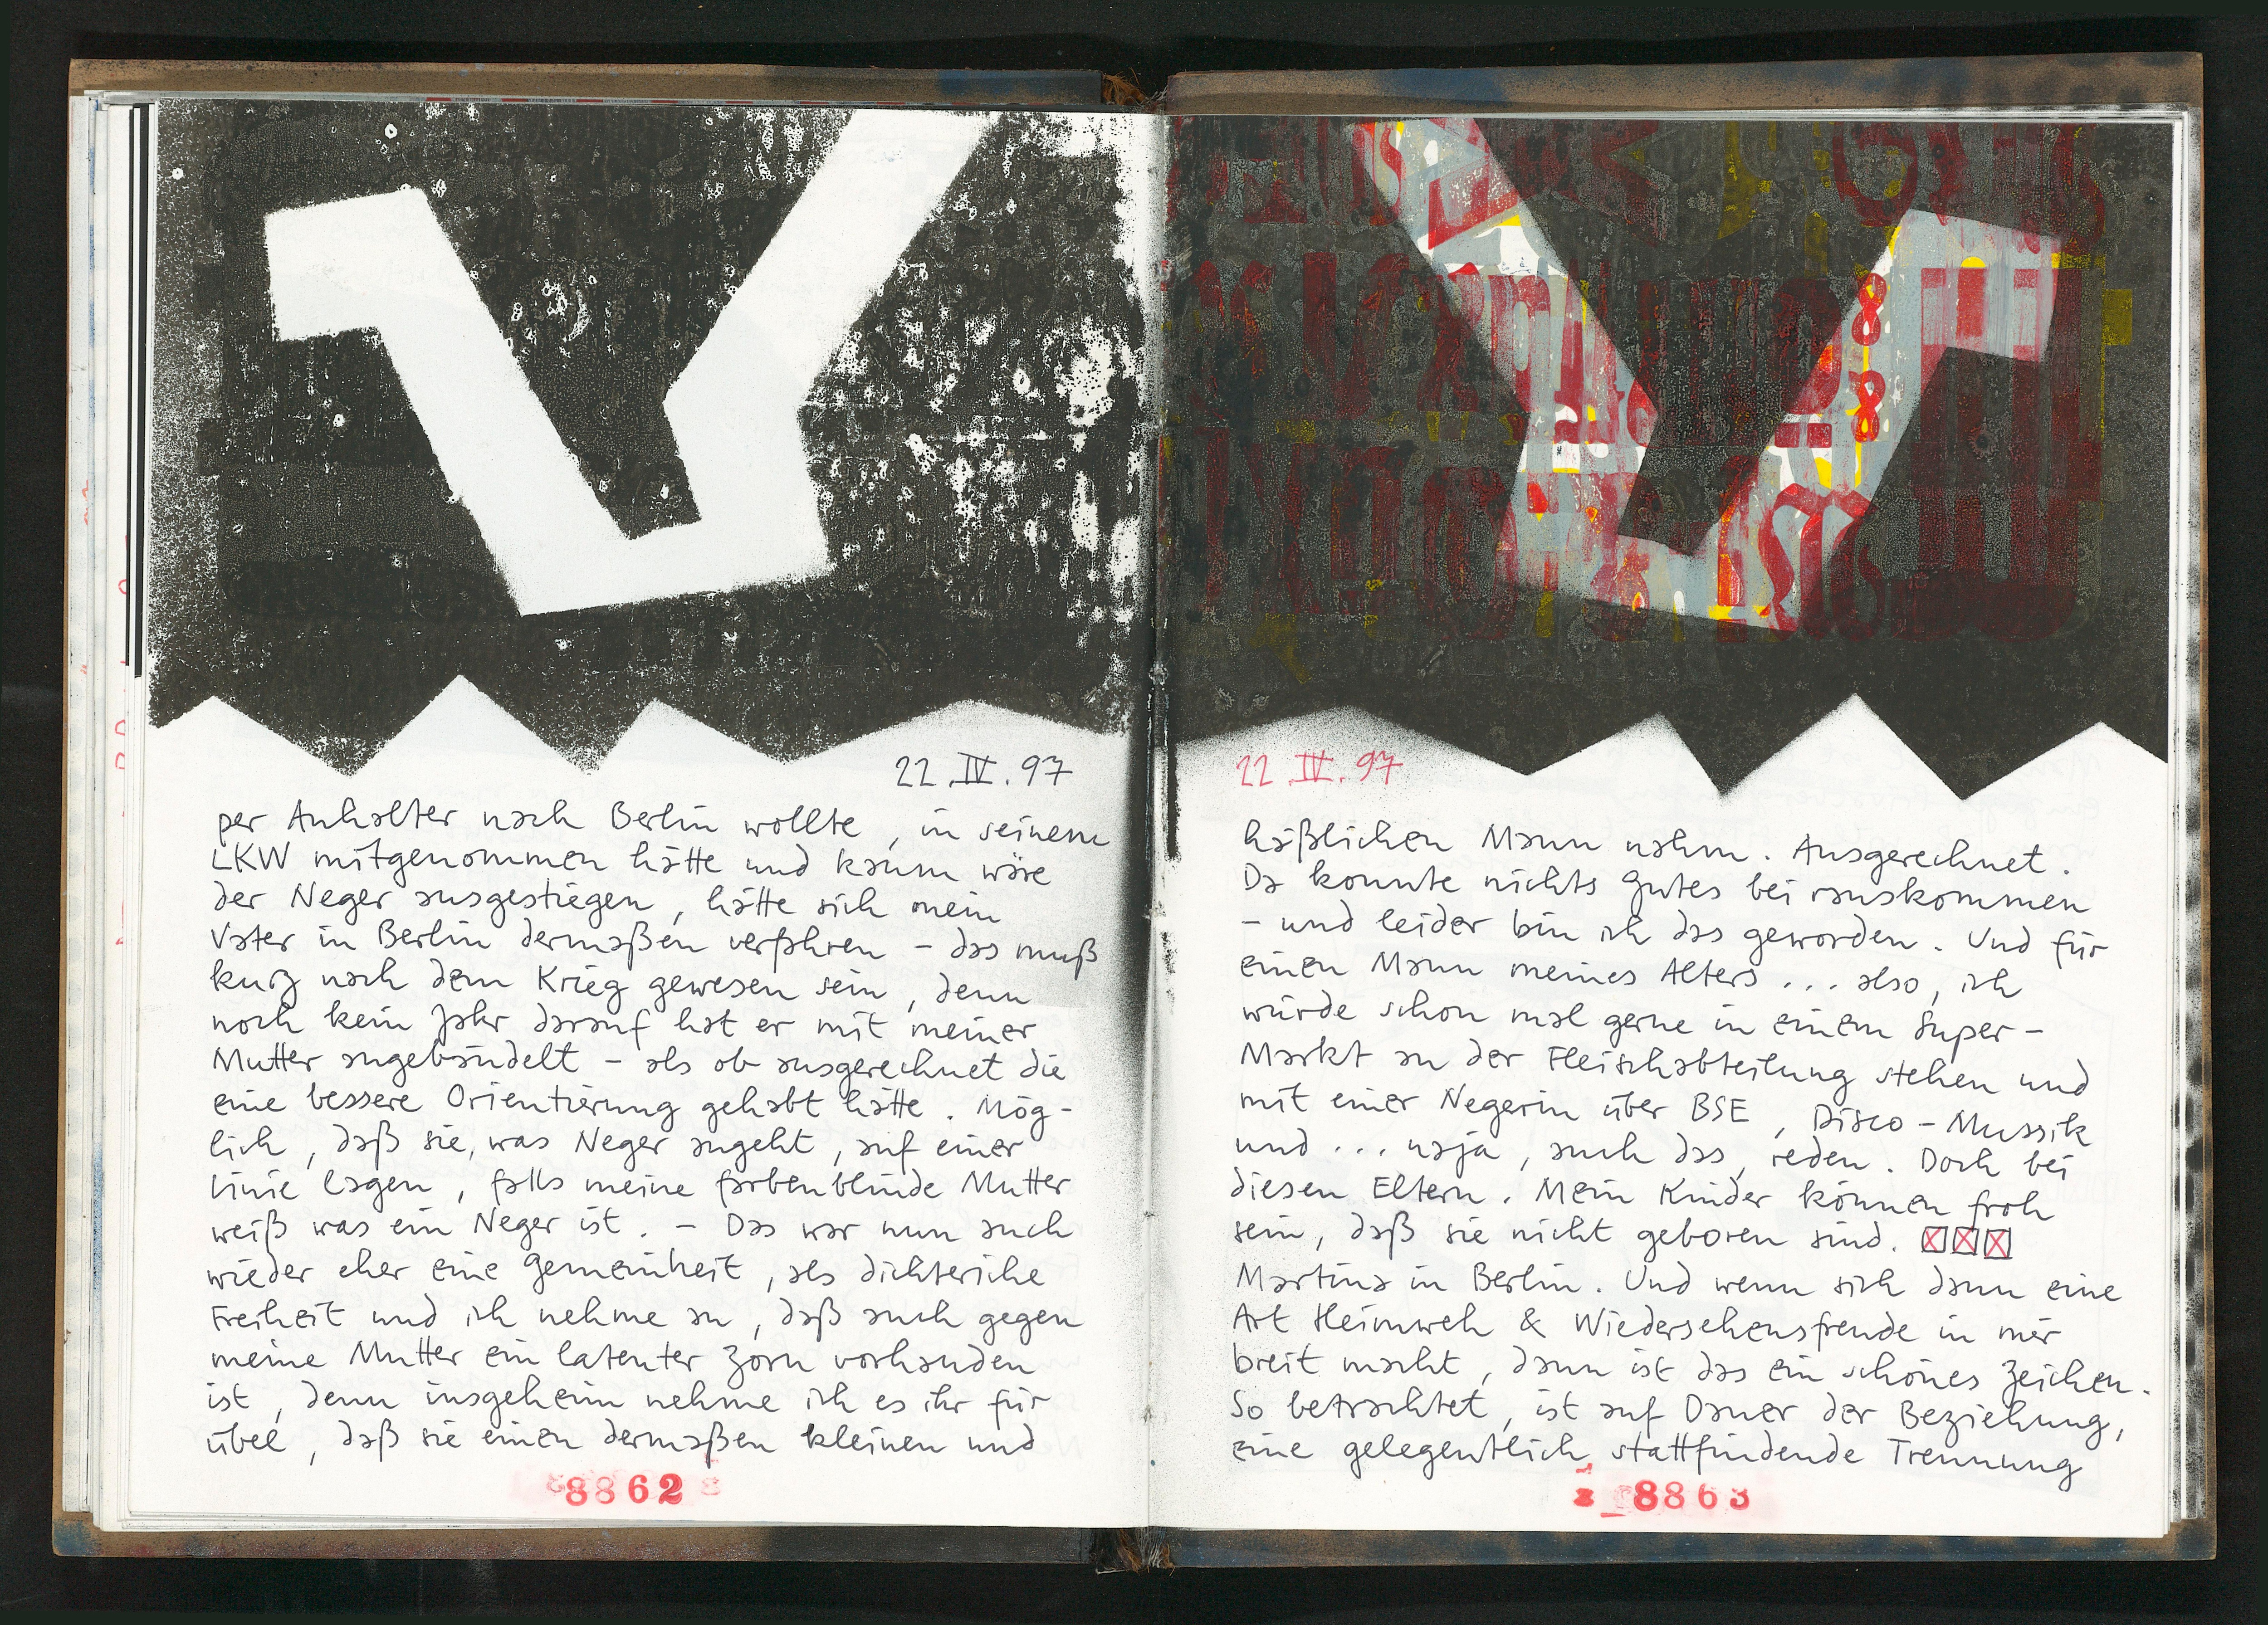 22.IV.97
per Anhalter nach Berlin wollte, in seinem
LKW mitgenommen hätte und kaum wäre
der Neger ausgestiegen, hätte sich mein
Vater in Berlin dermaßen verfahren – das muß
kurz nach dem Krieg gewesen sein, denn
noch kein Jahr darauf hat er mit meiner
Mutter angebändelt – als ob ausgerechnet die
eine bessere Orientierung gehabt hätte. Mög-
lich, daß sie, was Neger angeht, auf einer
Linie lagen, falls meine farbenblinde Mutter
weiß was ein Neger ist. – Das war nun auch
wieder eher eine Gemeinheit, als dichteriche
Freiheit und ich nehme an, daß auch gegen
meine Mutter ein latenter Zorn vorhanden
ist, denn insgeheim nehme ich es ihr für
übel, daß sie einen dermaßen kleinen und
8862
22.IV.97
häßlichen Mann nahm. Ausgerechnet.
Da konnte nichts Gutes bei rauskommen
– und leider bin ich das geworden. Und für
einen Mann meines Alters ... also, ich
würde schon mal gerne in einem Super-
Markt an der Fleischabteilung stehen und
mit einer Negerin über BSE, Disco-Mussik
und ... naja, auch das, reden. Doch bei
diesen Eltern. Mein Kinder können froh
sein, daß sie nicht geboren sind. ☒☒☒
Martina in Berlin. Und wenn sich dann eine
Art Heimweh & Wiedersehensfreude in mir
breit macht, dann ist das ein schönes Zeichen.
So betrachtet, ist auf Dauer der Beziehung,
eine gelegentlich stattfindende Trennung
8863